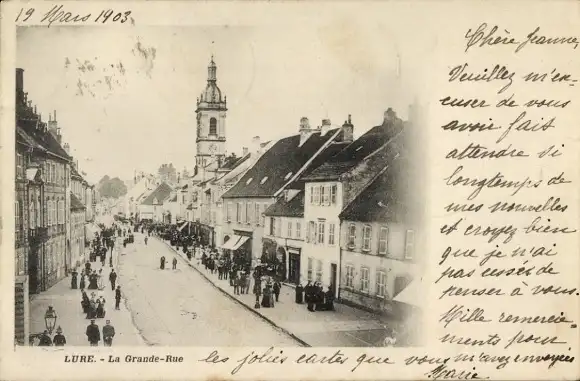 19 Mars 1903
Chère Jeanne,
Veuillez m'ex-
cuser de vous
avoir fait
attendre si
longtemps de
mes nouvelles
et croyez bien
que je n'ai
pas cessés de
penser à vous.
Mille remercie-
ments pour
LURE. - La Grande-Rue
les jolies cartes que vous m'avez envoyées
Marie